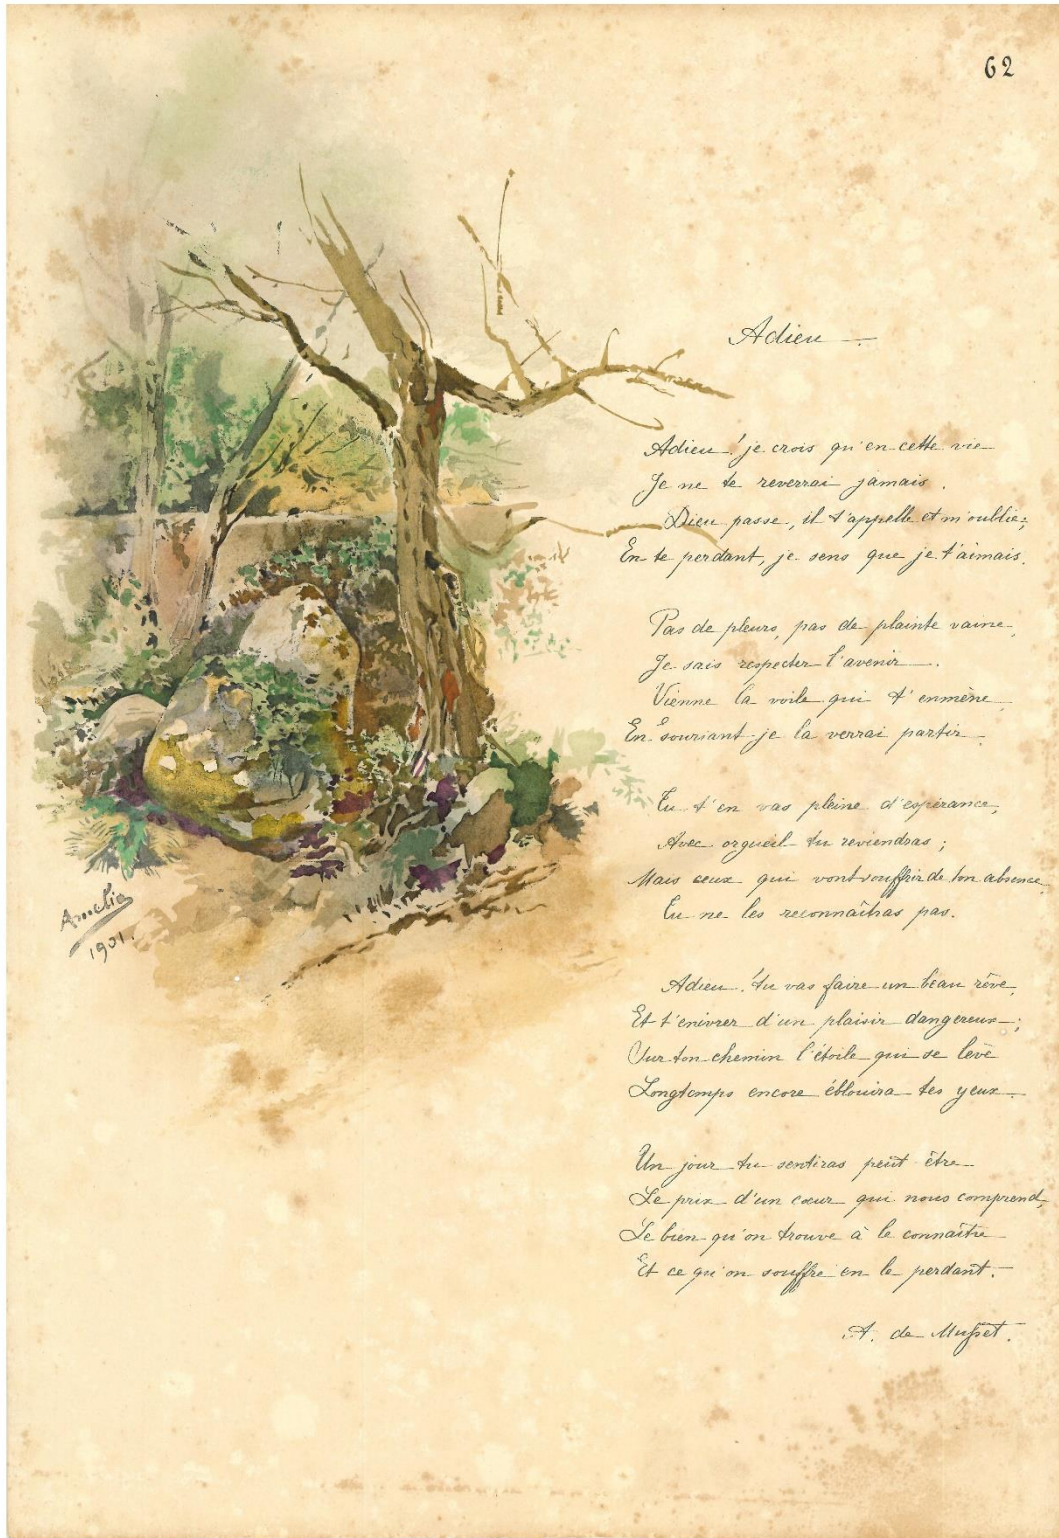 62
Adieu
Adieu ! je crois qu'en cette vie
Je ne te reverrai jamais.
Dieu passe, il t'appelle et m'oublie ;
En te perdant, je sens que je t'aimais.
Pas de pleurs, pas de plainte vaine,
Je sais respecter l'avenir.
Vienne la voile qui t'emmène,
En souriant je la verrai partir.
Tu t'en vas pleine d'espérance,
Avec orgueil tu reviendras ;
Mais ceux qui vont souffrir de ton absence,
Tu ne les reconnaîtras pas.
Adieu ! tu vas faire un beau rêve,
Et t'enivrer d'un plaisir dangereux ;
Sur ton chemin l'étoile qui se lève
Longtemps encore éblouira tes yeux.
Un jour tu sentiras peut être
Le prix d'un cœur qui nous comprend,
Le bien qu'on trouve à le connaître
Et ce qu'on souffre en le perdant.
A. de Musset.
Amelia
1901.